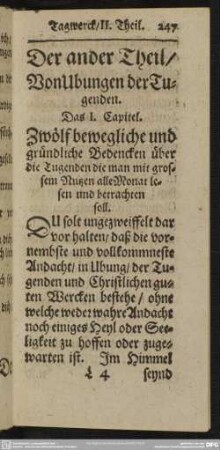 Tagwerck/II. Theil. 247
Der ander Theil/
Von Ubungen der Tu-
genden.
Das I. Capitel.
Zwölf bewegliche und
gründliche Bedencken über
die Tugenden die man mit gros-
sem Nutzen alle Monat le-
sen und betrachten
soll.
DU solt ungezweiffelt dar
vor halten/ daß die vor-
nembste und vollkommneste
Andacht/ in Ubung/ der Tu-
genden und Christlichen gu-
ten Wercken bestehe/ ohne
welche weder wahre Andacht
noch einiges Heyl oder See-
ligkeit zu hoffen oder zuge-
warten ist. Im Himmel
L 4 seynd